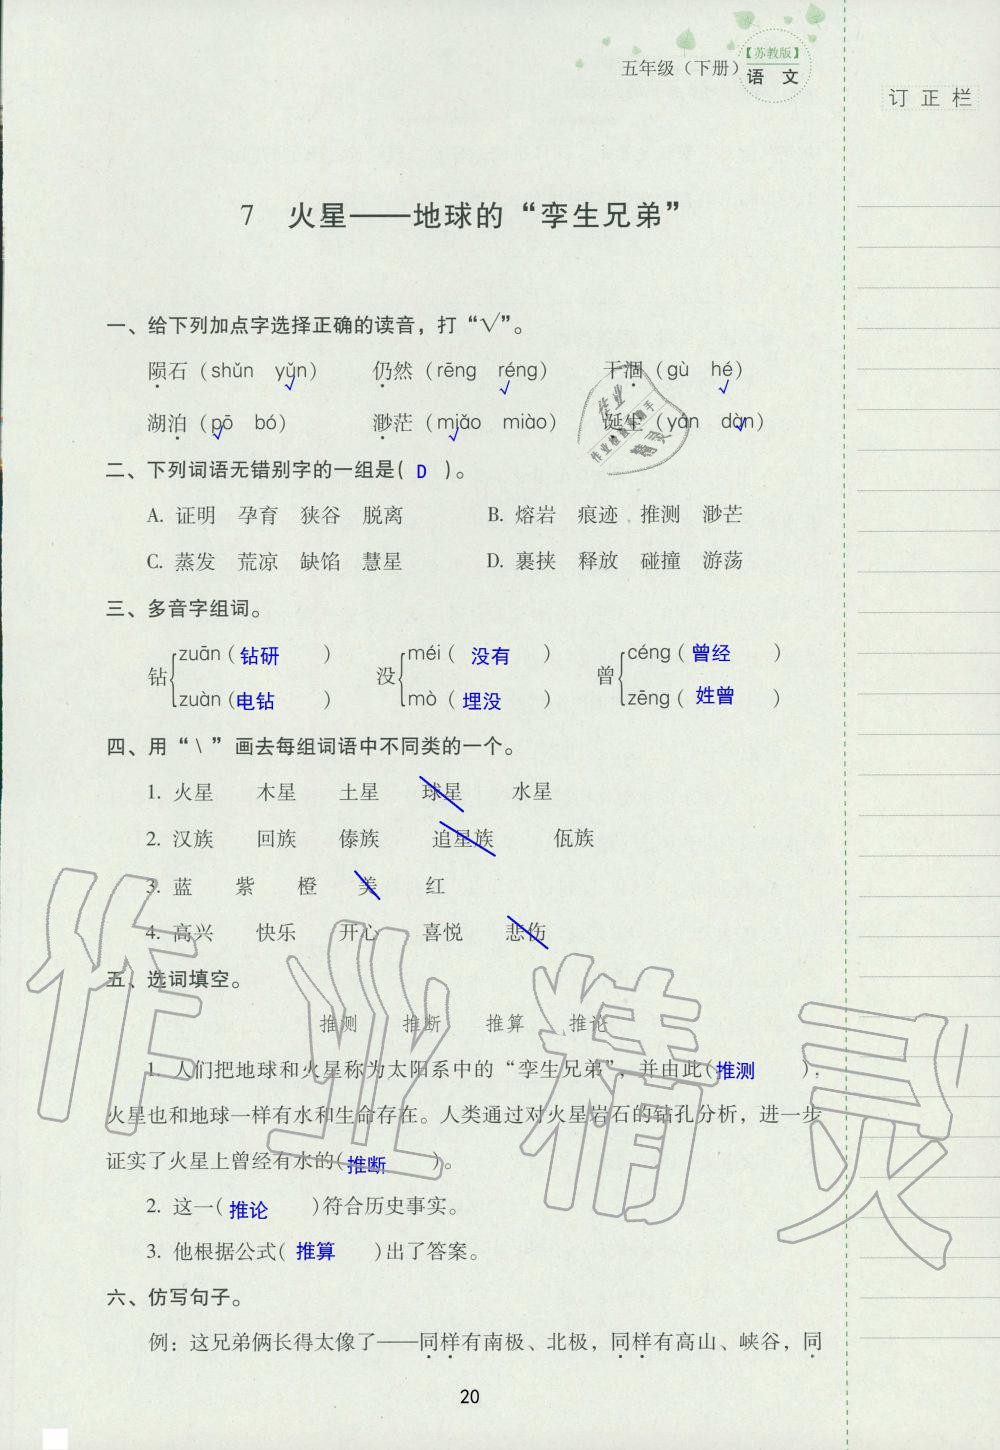 五年级（下册）
【苏教版】
语 文
订 正 栏
7 火星——地球的“孪生兄弟”
一、给下列加点字选择正确的读音，打“√”。
陨石（shǔn yǔn） 仍然（rēng réng） 干涸（gù hé）
√ √ √
湖泊（pō bó） 渺茫（miǎo miào） 诞生（yán dàn）
√ √ √
二、下列词语无错别字的一组是( D )。
A. 证明 孕育 狭谷 脱离 B. 熔岩 痕迹 推测 渺芒
C. 蒸发 荒凉 缺馅 慧星 D. 裹挟 释放 碰撞 游荡
三、多音字组词。
钻 zuān（钻研） 没 méi（没有） 曾 céng（曾经）
zuàn（电钻） mò（埋没） zēng（姓曾）
四、用“\”画去每组词语中不同类的一个。
1. 火星 木星 土星 球星 水星
2. 汉族 回族 傣族 追星族 佤族
3. 蓝 紫 橙 美 红
4. 高兴 快乐 开心 喜悦 悲伤
五、选词填空。
推测 推断 推算 推论
1. 人们把地球和火星称为太阳系中的“孪生兄弟”，并由此(推测)：
火星也和地球一样有水和生命存在。人类通过对火星岩石的钻孔分析，进一步
证实了火星上曾经有水的(推断)。
2. 这一(推论)符合历史事实。
3. 他根据公式(推算)出了答案。
六、仿写句子。
例：这兄弟俩长得太像了——同样有南极、北极，同样有高山、峡谷，同
20
作业精灵